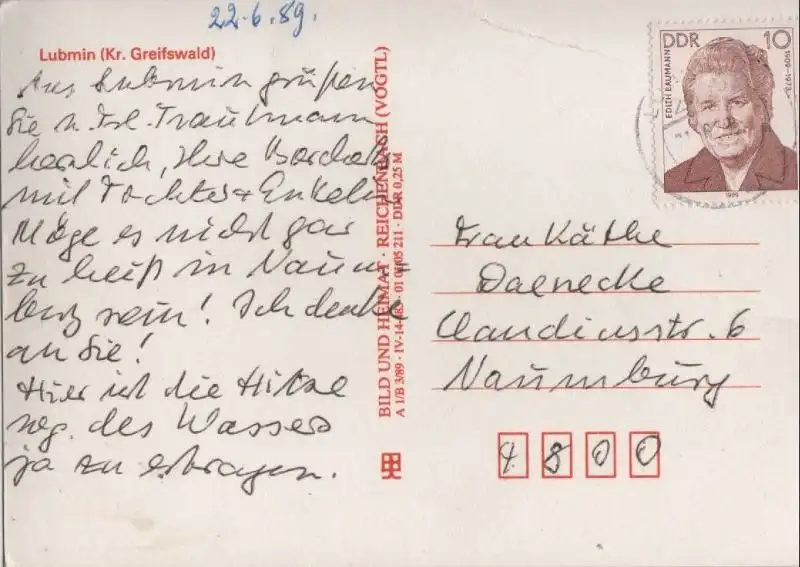 22.6.89.
Lubmin (Kr. Greifswald)
Aus Lubmin grüßen
Sie u. Frl. Trautmann
herzlich, Ihre
mit Tochter + Enkelin
Möge es nicht gar
zu heiß in Naum-
burg sein! Ich denke
an Sie!
Hier ist die Hitze
weg. des Wassers
ja zu ertragen.
BILD UND HEIMAT · REICHENBACH (VOGTL)
A 1/B 3/89 · IV-14-483 · 01 01 05 211 · DDR 0,25 M
DDR 10
EDITH BAUMANN
1909–1973
1989
Frau Käthe
Daenecke
Claudiusstr. 6
Naumburg
4800